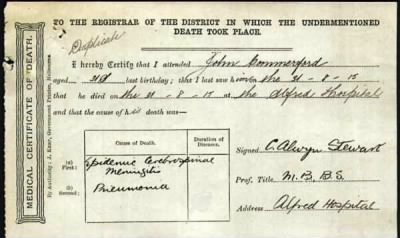 TO THE REGISTRAR OF THE DISTRICT IN WHICH THE UNDERMENTIONED
DEATH TOOK PLACE.
Duplicate
I hereby Certify that I attended John Commerford
aged 21 last birthday; that I last saw him on the 21-8-15
that he died on the 21-8-15 at the Alfred Hospital
and that the cause of his death was—
Causes of Death.
Duration of Diseases.
(a)
(First)
Epidemic Cerebrospinal
Meningitis
(b)
(Second)
Pneumonia
Signed C. Alwyn Stewart
Prof. Title M.B. B.S.
Address Alfred Hospital
MEDICAL CERTIFICATE OF DEATH.
By Authority: J. Kemp, Government Printer, Melbourne.